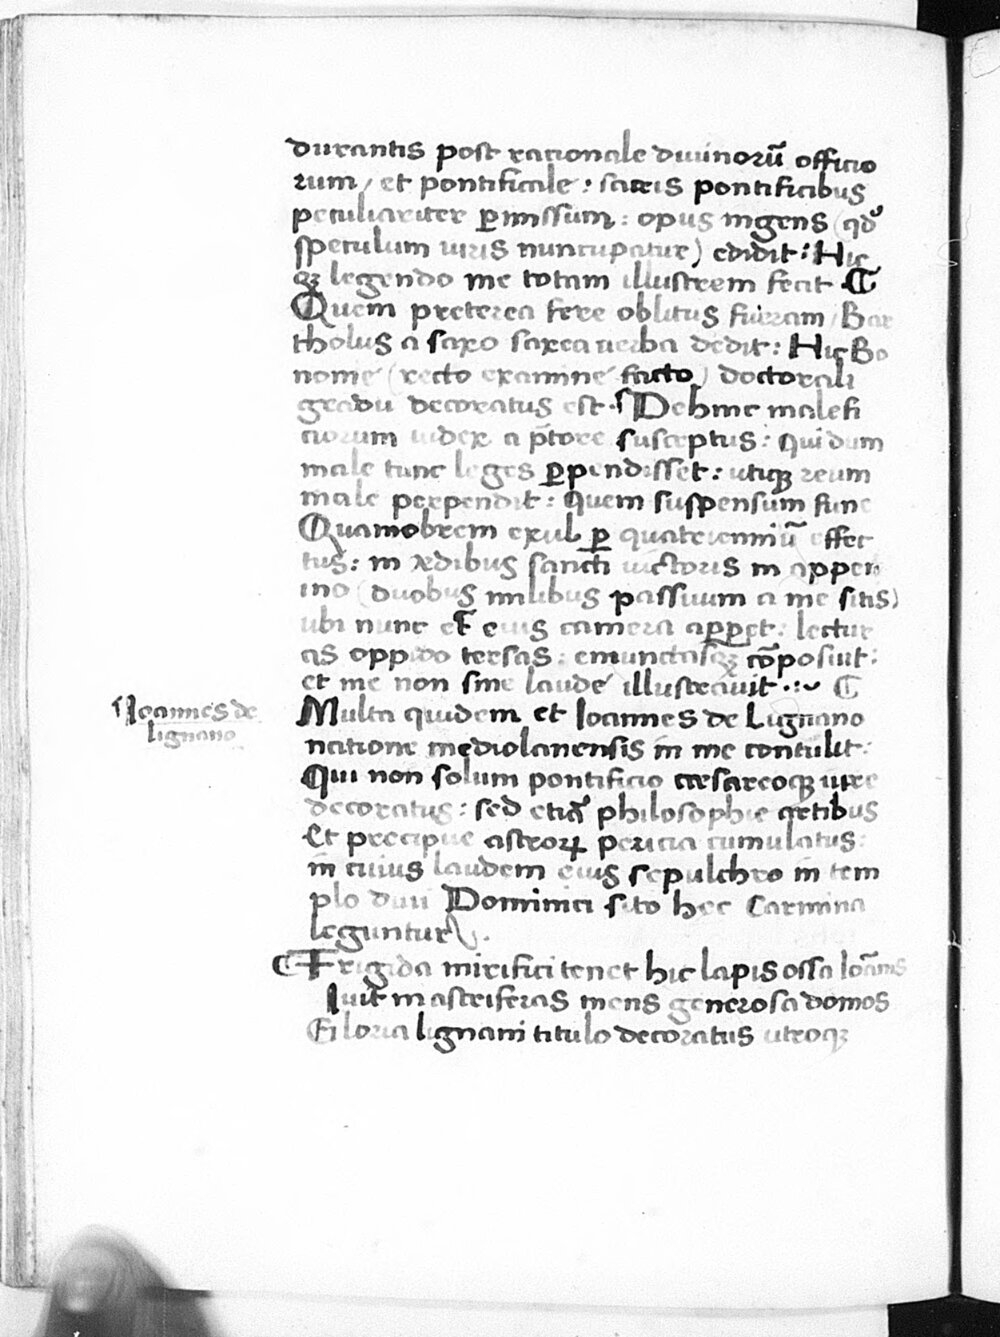 durantis post rationale diuinorū officio
rum, et pontificale: sacris pontificibus
peculiariter ꝑmissum: opus ingens (qđ
speculum iuris nuncupatur) edidit: Hic
qꝫ legendo me totam illustrem fecit ¶
Quem preterea fere oblitus fueram, Bar
tholus a saxo saxea uerba dedit: Hic Bo
nonie (recto examine facto) doctorali
gradu decoratus est. Dehinc malefi
ciorum iudex a p̄tore susceptus: Qui dum
male tunc leges ꝑpendisset: utiqꝫ reum
male perpendit: Quem suspensum fune
Quamobrem exul ꝑ quatriennıū effec
tus: in ædibus sancti uictoris in appen
ino (duobus milibus passuum a me sitis)
ubi nunc et eius camera apꝑet: lectur
as oppido tersas: emunctasqꝫ cōposuit:
et me non sine laude illustrauit. ¶
Ioannes de
lignano
Multa quidem et Ioannes de Lignano
natione mediolanensis in me contulit:
Qui non solum pontificio cæsareoqꝫ iure
decoratus: sed etiā philosophie artibus
Et precipue astroꝝ pericia cumulatus:
in cuius laudem eius sepulchro in tem
plo diui Dominici sito hec Carmina
leguntur.
¶ Frigida mirifici tenet hic lapis ossa Ioānis
Iuit in astriferas mens generosa domos
Gloria lignani titulo decoratus utroqꝫ